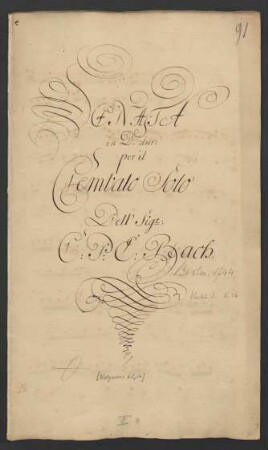 91
SONATA
in D. dur.
per il
Cembalo Solo
Dell' Sigr.
C: P: E: Bach.
Berlin 1744